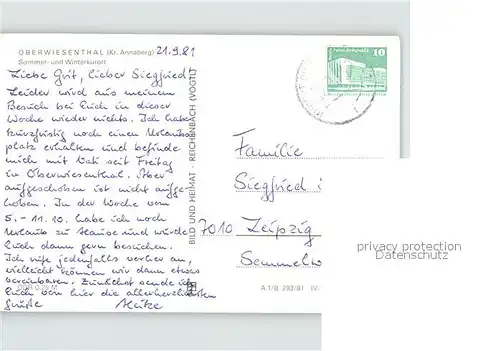 OBERWIESENTHAL (Kr. Annaberg) 21.9.81
Sommer- und Winterkurort
Liebe Grit, lieber Siegfried!
Leider wird aus meinem
Besuch bei Euch in dieser
Woche wieder nichts. Ich habe
kurzfristig noch einen Urlaubs
platz erhalten und befinde
mich mit Vati seit Freitag
in Oberwiesenthal. Aber
aufgeschoben ist nicht aufge-
hoben. In der Woche vom
5.-11.10. habe ich noch
Urlaub zu Hause und würde
Euch dann gern besuchen.
Ich rufe jedenfalls vorher an,
vielleicht können wir dann etwas
vereinbaren. Zunächst sende ich
Euch von hier die allerherzlichsten
Grüße Heike
DDR 0,25 M
BILD UND HEIMAT · REICHENBACH (VOGTL)
10
Familie
Siegfried
7010 Leipzig
Semmelw
A 1/B 293/81 IV-
privacy protection
Datenschutz